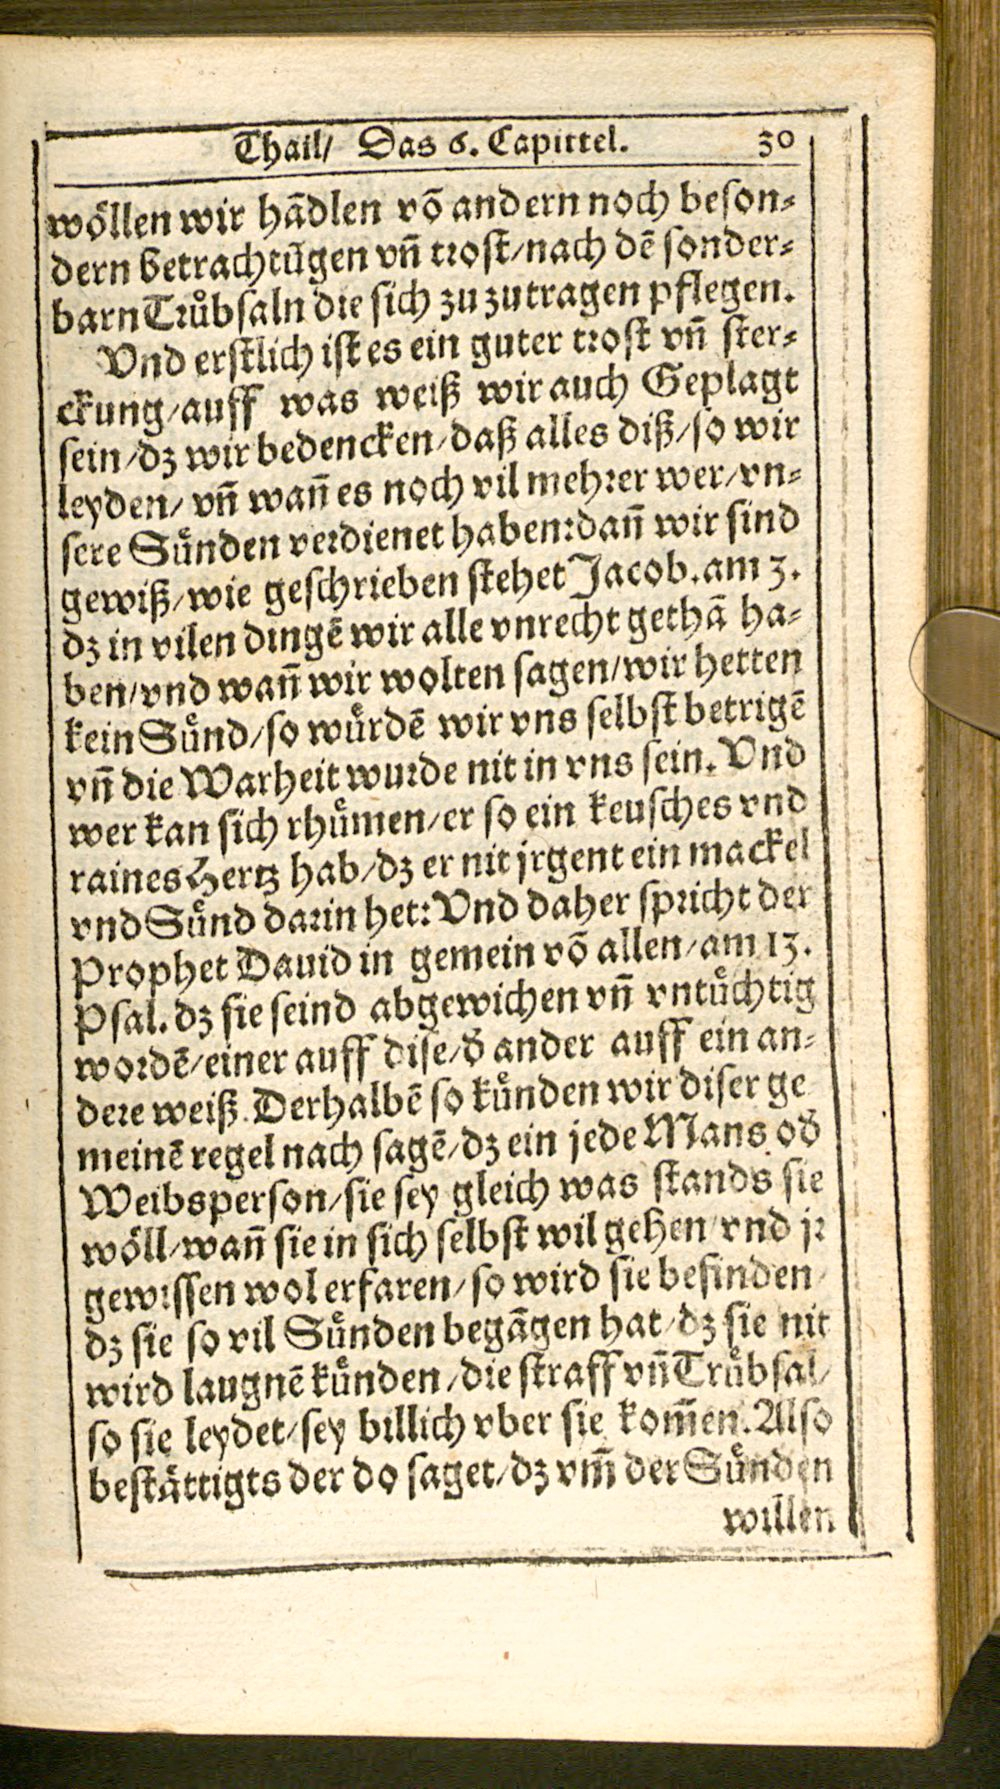 Thail/ Das 6. Capittel. 30
wöllen wir hãdlen võ andern noch beson⸗
dern betrachtũgen vñ trost/nach dẽ sonder⸗
barn Truͤbsaln die sich zu zutragen pflegen.
Vnd erstlich ist es ein guter trost vñ ster⸗
ckung/auff was weiß wir auch Geplagt
sein/dz wir bedencken/daß alles diß/so wir
leyden/ vñ wañ es noch vil mehrer wer/vn⸗
sere Suͤnden verdienet haben:dañ wir sind
gewiß/wie geschrieben stehet Jacob.am 3.
dz in vilen dingẽ wir alle vnrecht gethã ha⸗
ben/vnd wañ wir wolten sagen/wir hetten
kein Suͤnd/so wuͤrdẽ wir vns selbst betrigẽ
vñ die Warheit wurde nit in vns sein. Vnd
wer kan sich rhuͤmen/er so ein keusches vnd
raines Hertz hab/dz er nit jrgent ein mackel
vnd Suͤnd darin het: Vnd daher spricht der
Prophet Dauid in gemein võ allen/am 13.
Psal. dz sie seind abgewichen vñ vntuͤchtig
wordẽ/einer auff dise/ð ander auff ein an⸗
dere weiß. Derhalbẽ so kuͤnden wir diser ge
meinẽ regel nach sagẽ/dz ein jede Mans oð
Weibsperson/sie sey gleich was stands sie
woͤll/wañ sie in sich selbst wil gehen/vnd jr
gewissen wol erfaren/so wird sie befinden/
dz sie so vil Suͤnden begãgen hat/dz sie nit
wird laugnẽ kuͤnden/die straff vñ Truͤbsal/
so sie leydet/sey billich vber sie kom̃en. Also
bestaͤttigts der do saget/dz vm̃ der Suͤnden
willen